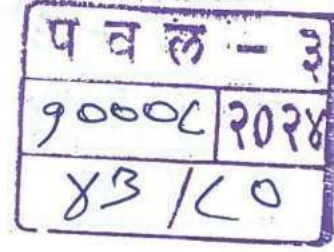 प व ल - ३
१०००८ २०२४
४३/८०